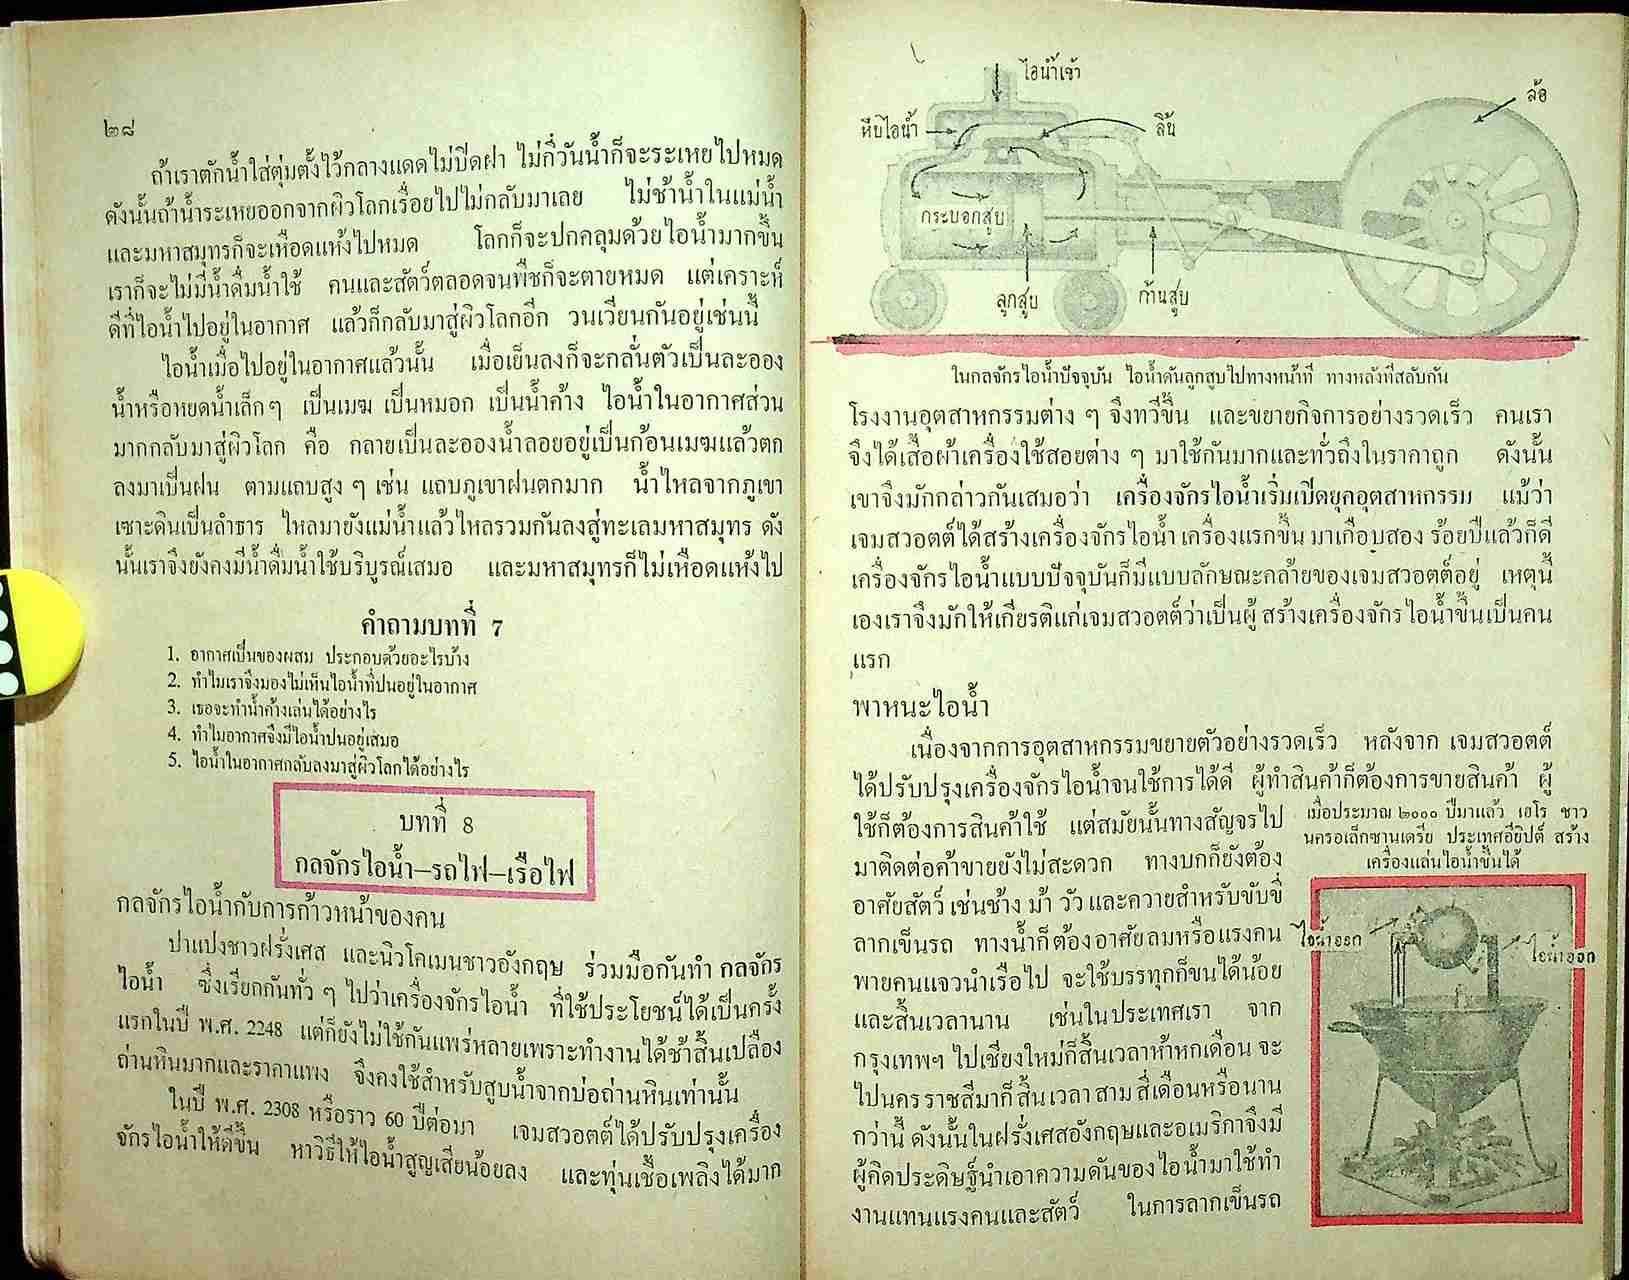 ๒๘
ถ้าเราตักน้ำใส่ตุ่มตั้งไว้กลางแดดไม่ปิดฝา ไม่กี่วันน้ำก็จะระเหยไปหมด
ดังนั้นถ้าน้ำระเหยออกจากผิวโลกเรื่อยไปไม่กลับมาเลย ไม่ช้าน้ำในแม่น้ำ
และมหาสมุทรก็จะเหือดแห้งไปหมด โลกก็จะปกคลุมด้วยไอน้ำมากขึ้น
เราก็จะไม่มีน้ำดื่มน้ำใช้ คนและสัตว์ตลอดจนพืชก็จะตายหมด แต่เคราะห์
ดีที่ไอน้ำไปอยู่ในอากาศ แล้วก็กลับมาสู่ผิวโลกอีก วนเวียนกันอยู่เช่นนี้
ไอน้ำเมื่อไปอยู่ในอากาศแล้วนั้น เมื่อเย็นลงก็จะกลั่นตัวเป็นละออง
น้ำหรือหยดน้ำเล็กๆ เป็นเมฆ เป็นหมอก เป็นน้ำค้าง ไอน้ำในอากาศส่วน
มากกลับมาสู่ผิวโลก คือ กลายเป็นละอองน้ำลอยอยู่เป็นก้อนเมฆแล้วตก
ลงมาเป็นฝน ตามแถบสูง ๆ เช่น แถบภูเขาฝนตกมาก น้ำไหลจากภูเขา
เซาะดินเป็นลำธาร ไหลมายังแม่น้ำแล้วไหลรวมกันลงสู่ทะเลมหาสมุทร ดัง
นั้นเราจึงยังคงมีน้ำดื่มน้ำใช้บริบูรณ์เสมอ และมหาสมุทรก็ไม่เหือดแห้งไป
คำถามบทที่ 7
1. อากาศเป็นของผสม ประกอบด้วยอะไรบ้าง
2. ทำไมเราจึงมองไม่เห็นไอน้ำที่ปนอยู่ในอากาศ
3. เธอจะทำน้ำค้างเล่นได้อย่างไร
4. ทำไมอากาศจึงมีไอน้ำปนอยู่เสมอ
5. ไอน้ำในอากาศกลับลงมาสู่ผิวโลกได้อย่างไร
บทที่ 8
กลจักรไอน้ำ–รถไฟ–เรือไฟ
กลจักรไอน้ำกับการก้าวหน้าของคน
ปาแปงชาวฝรั่งเศส และนิวโคเมนชาวอังกฤษ ร่วมมือกันทำ กลจักร
ไอน้ำ ซึ่งเรียกกันทั่ว ๆ ไปว่าเครื่องจักรไอน้ำ ที่ใช้ประโยชน์ได้เป็นครั้ง
แรกในปี พ.ศ. 2248 แต่ก็ยังไม่ใช้กันแพร่หลายเพราะทำงานได้ช้าสิ้นเปลือง
ถ่านหินมากและราคาแพง จึงคงใช้สำหรับสูบน้ำจากบ่อถ่านหินเท่านั้น
ในปี พ.ศ. 2308 หรือราว 60 ปีต่อมา เจมสวอตต์ได้ปรับปรุงเครื่อง
จักรไอน้ำให้ดีขึ้น หาวิธีให้ไอน้ำสูญเสียน้อยลง และทุ่นเชื้อเพลิงได้มาก
ไอน้ำเข้า
หีบไอน้ำ
ลิ้น
ล้อ
กระบอกสูบ
ลูกสูบ
ก้านสูบ
ในกลจักรไอน้ำปัจจุบัน ไอน้ำดันลูกสูบไปทางหน้าที ทางหลังทีสลับกัน
โรงงานอุตสาหกรรมต่าง ๆ จึงทวีขึ้น และขยายกิจการอย่างรวดเร็ว คนเรา
จึงได้เสื้อผ้าเครื่องใช้สอยต่าง ๆ มาใช้กันมากและทั่วถึงในราคาถูก ดังนั้น
เขาจึงมักกล่าวกันเสมอว่า เครื่องจักรไอน้ำเริ่มเปิดยุคอุตสาหกรรม แม้ว่า
เจมสวอตต์ได้สร้างเครื่องจักรไอน้ำ เครื่องแรกขึ้น มาเกือบสอง ร้อยปีแล้วก็ดี
เครื่องจักรไอน้ำแบบปัจจุบันก็มีแบบลักษณะกล้ายของเจมสวอตต์อยู่ เหตุนี้
เองเราจึงมักให้เกียรติแก่เจมสวอตต์ว่าเป็นผู้ สร้างเครื่องจักรไอน้ำขึ้นเป็นคน
แรก
พาหนะไอน้ำ
เนื่องจากการอุตสาหกรรมขยายตัวอย่างรวดเร็ว หลังจาก เจมสวอตต์
ได้ปรับปรุงเครื่องจักรไอน้ำจนใช้การได้ดี ผู้ทำสินค้าก็ต้องการขายสินค้า ผู้
ใช้ก็ต้องการสินค้าใช้ แต่สมัยนั้นทางสัญจรไป
มาติดต่อค้าขายยังไม่สะดวก ทางบกก็ยังต้อง
อาศัยสัตว์ เช่นช้าง ม้า วัว และควายสำหรับขับขี่
ลากเข็นรถ ทางน้ำก็ต้องอาศัยลมหรือแรงคน
พายคนแจวนำเรือไป จะใช้บรรทุกก็ขนได้น้อย
และสิ้นเวลานาน เช่นในประเทศเรา จาก
กรุงเทพฯ ไปเชียงใหม่ก็สิ้นเวลาห้าหกเดือน จะ
ไปนครราชสีมาก็สิ้นเวลา สาม สี่เดือนหรือนาน
กว่านี้ ดังนั้นในฝรั่งเศสอังกฤษและอเมริกาจึงมี
ผู้คิดประดิษฐ์นำเอาความดันของไอน้ำมาใช้ทำ
งานแทนแรงคนและสัตว์ ในการลากเข็นรถ
เมื่อประมาณ ๒๐๐๐ ปีมาแล้ว เฮโร ชาว
นครอเล็กซานเดรีย ประเทศอียิปต์ สร้าง
เครื่องแล่นไอน้ำขึ้นได้
ไอน้ำออก
ไอน้ำออก